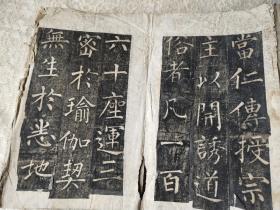 當仁傳授宗
主以開誘道
俗者凡一百
六十座運三
密於瑜伽契
無生於悉地